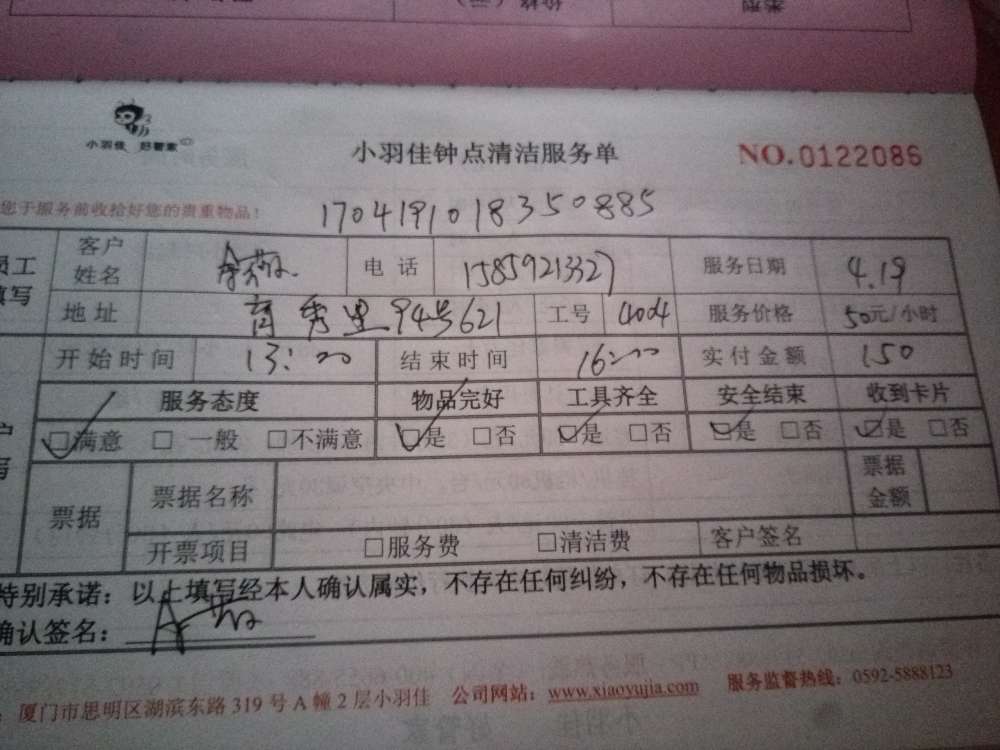 小羽佳 好管家
小羽佳钟点清洁服务单 NO.0122086
您于服务前收拾好您的贵重物品!
17041910183508 85
员工填写 客户姓名 电话 15859213327 服务日期 4.19
地址 育秀里94号621 工号 4004 服务价格 50元/小时
开始时间 13:00 结束时间 16:00 实付金额 150
服务态度 物品完好 工具齐全 安全结束 收到卡片
☑满意 □一般 □不满意 ☑是 □否 ☑是 □否 ☑是 □否 ☑是 □否
票据 票据名称 票据金额
开票项目 □服务费 □清洁费 客户签名
特别承诺：以上填写经本人确认属实，不存在任何纠纷，不存在任何物品损坏。
确认签名：
厦门市思明区湖滨东路319号A幢2层小羽佳 公司网站：www.xiaoyujia.com 服务监督热线：0592-5888123